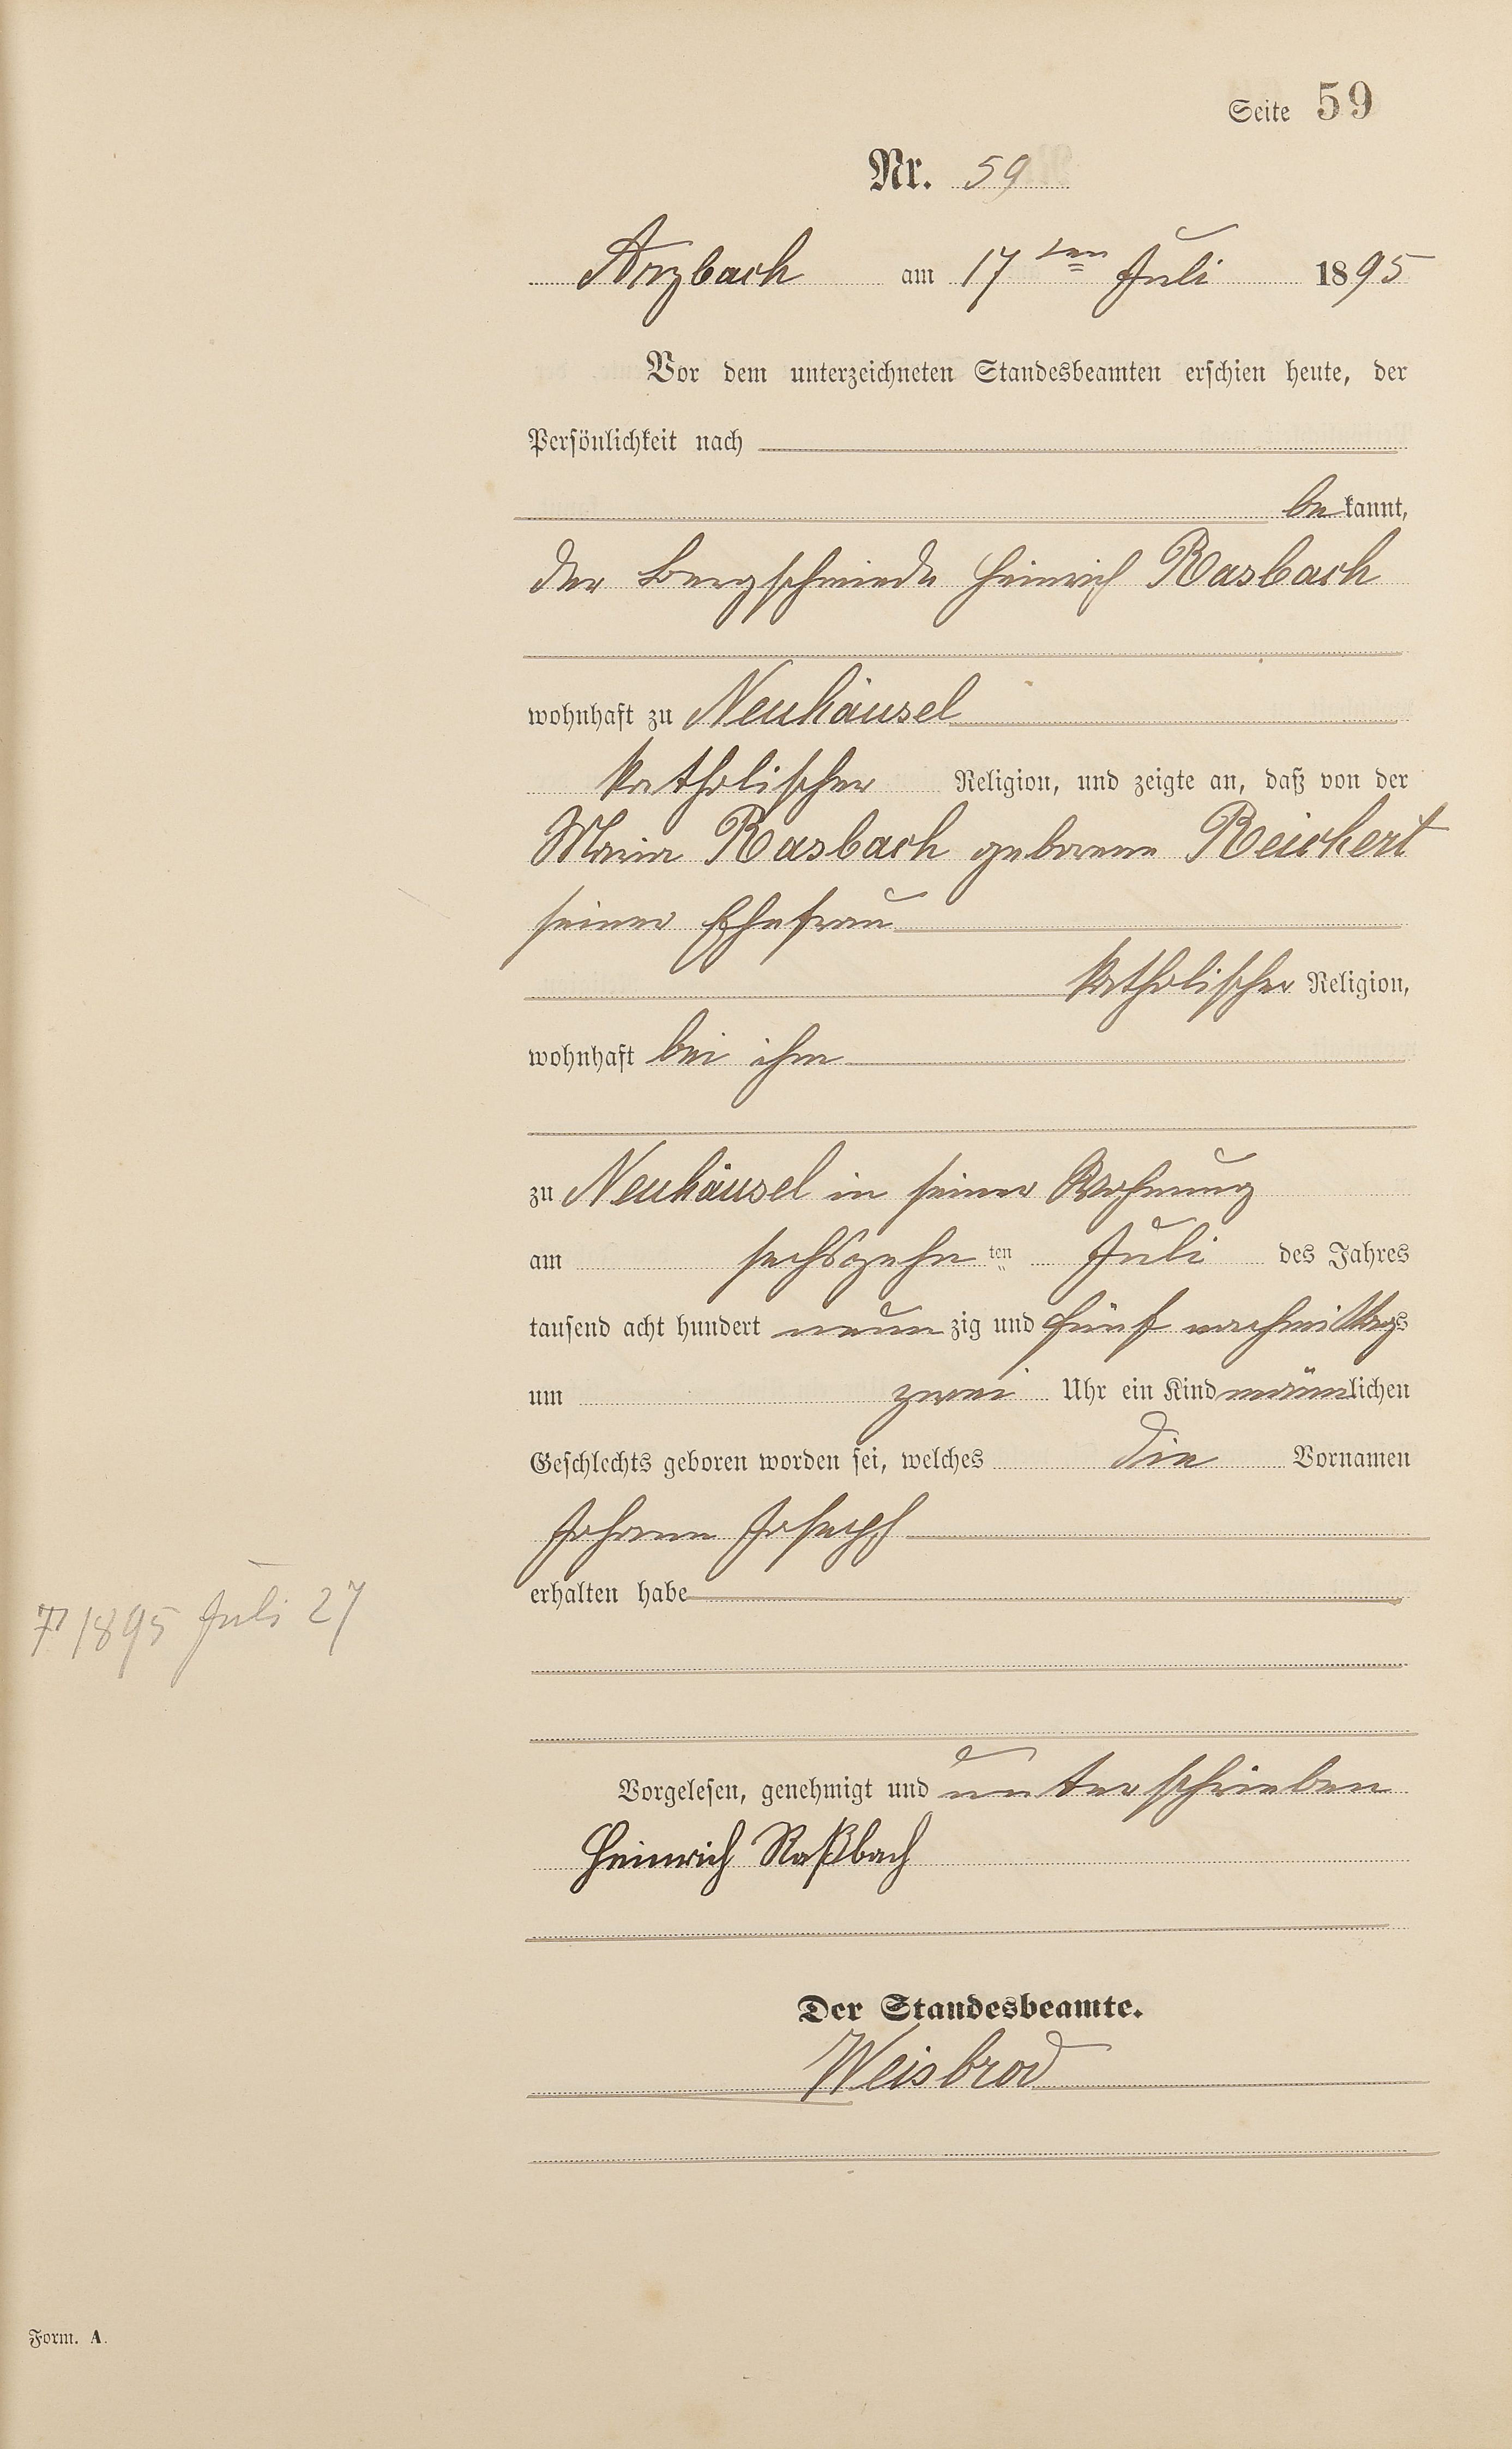 Seite 59
Nr. 59
Arzbach am 17ten Juli 1895
Vor dem unterzeichneten Standesbeamten erschien heute, der
Persönlichkeit nach
bekannt,
der Bergschmiede Heinrich Rasbach
wohnhaft zu Neuhäusel
katholischer Religion, und zeigte an, daß von der
Maria Rasbach geborene Reichert
seiner Ehefrau
katholischer Religion,
wohnhaft bei ihm
zu Neuhäusel in seiner Wohnung
am sechszehnten Juli des Jahres
tausend acht hundert neunzig und fünf nachmittags
um zwei Uhr ein Kind männlichen
Geschlechts geboren worden sei, welches die Vornamen
Johann Joseph
erhalten habe
† 1895 Juli 27
Vorgelesen, genehmigt und unterschrieben
Heinrich Raßbach
Der Standesbeamte.
Weisbrod
Form. A.